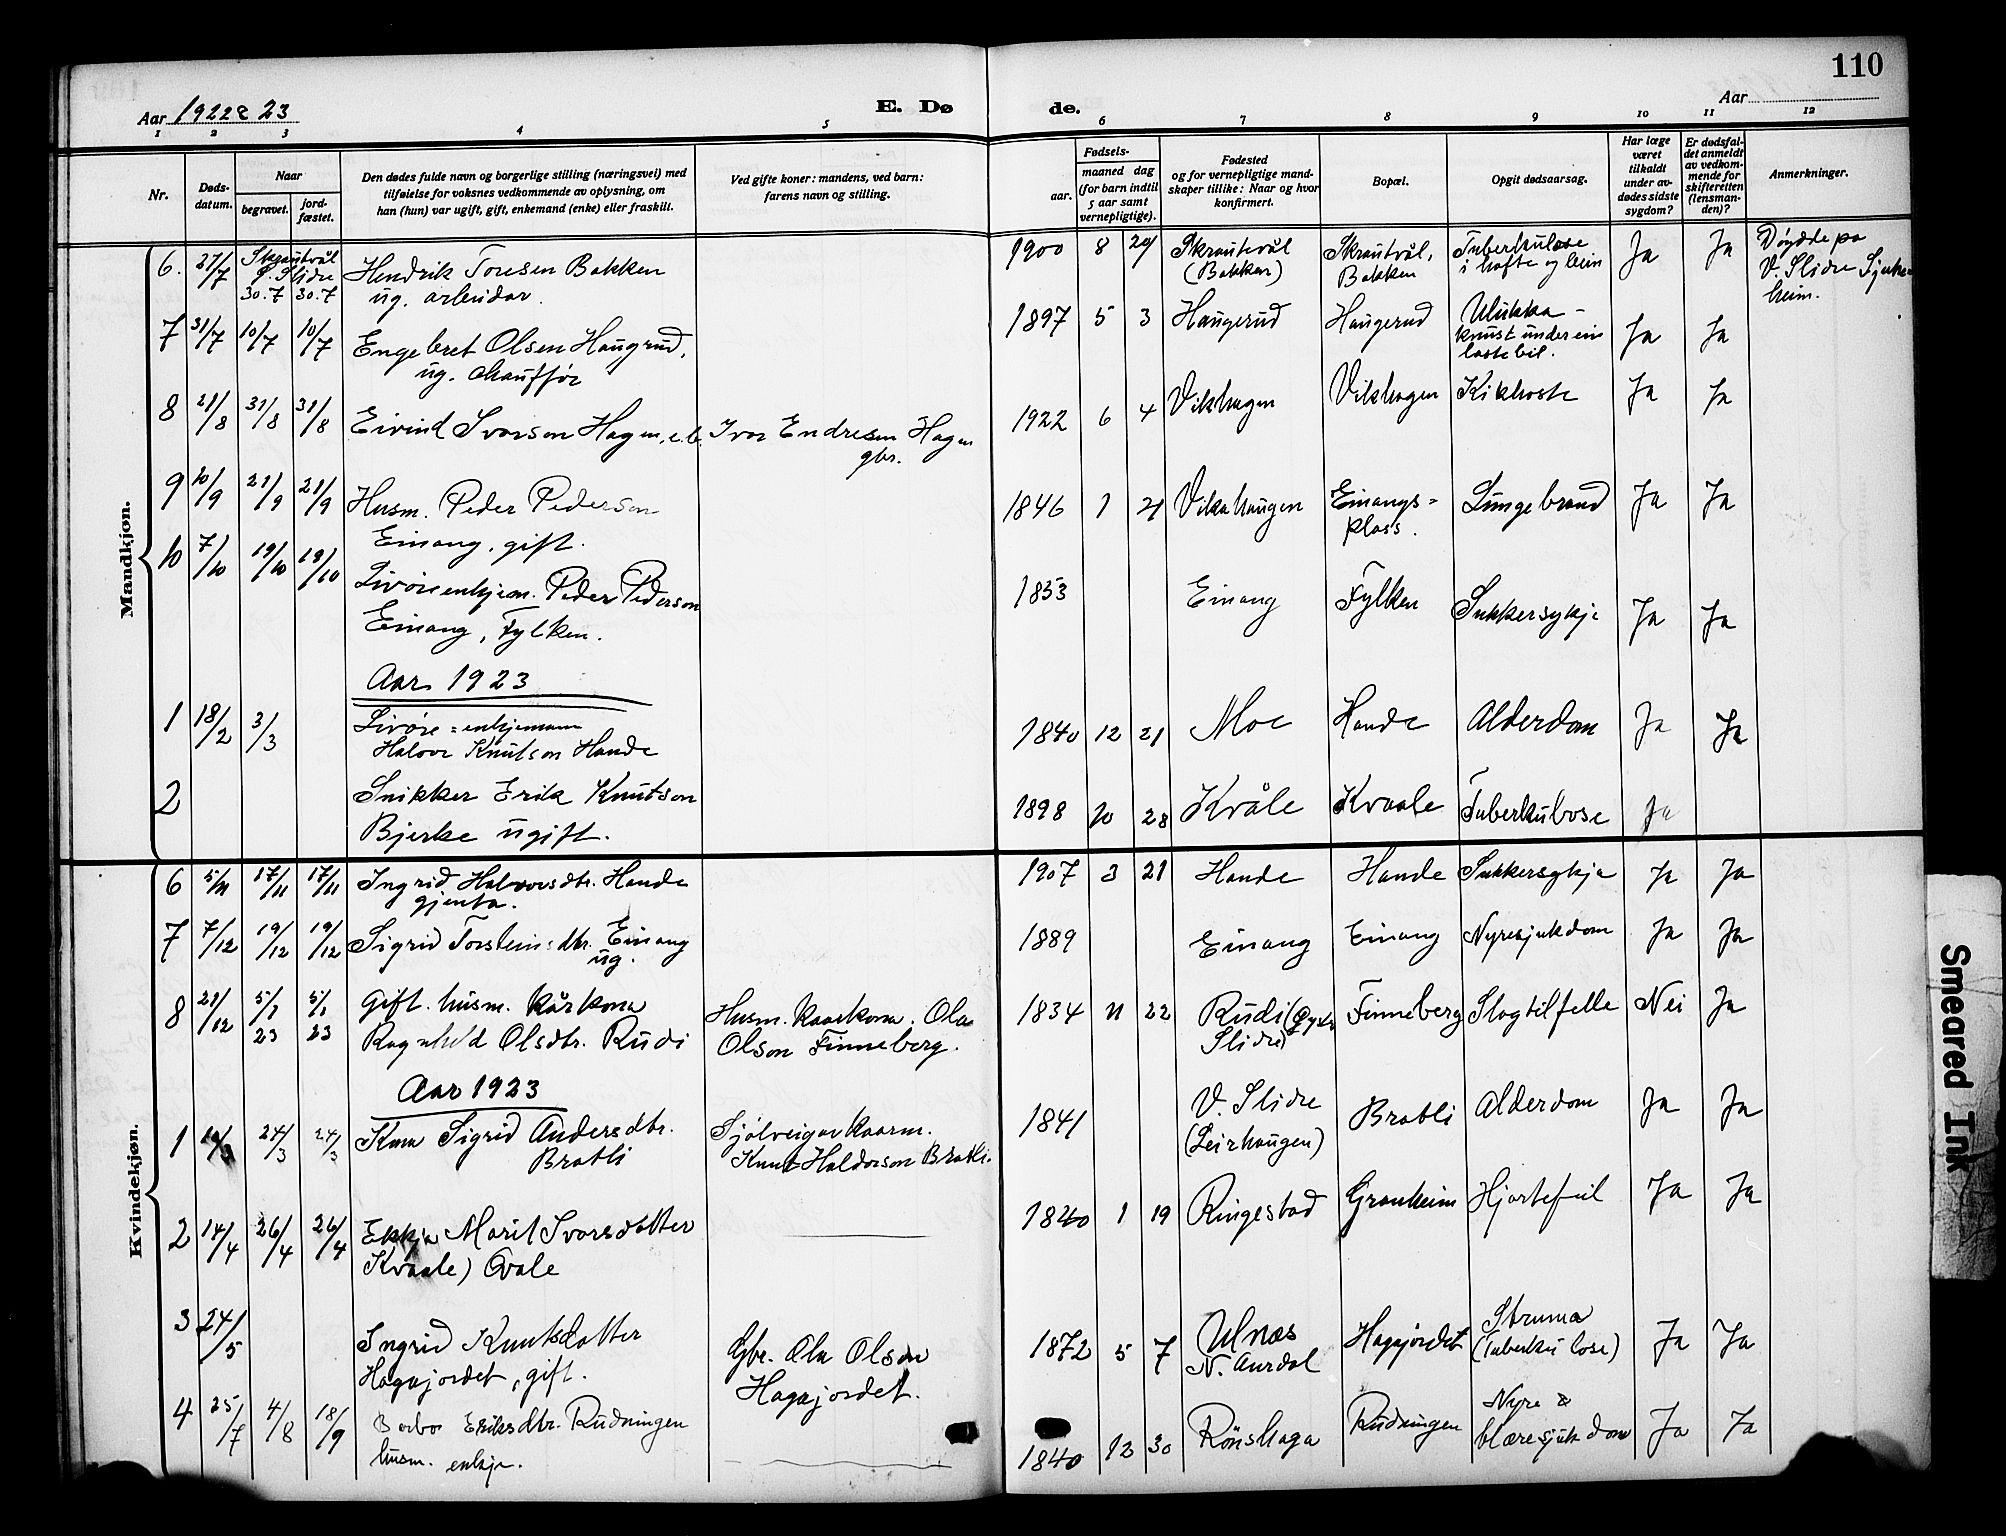 110
Aar 1922 & 23
E. Døde.
Aar
1 2 3 4 5 6 7 8 9 10 11 12
Nr.
Dødsdatum.
Naar
begravet.
jordfæstet.
Den dødes fulde navn og borgerlige stilling (næringsvei) med
tilføielse for voksnes vedkommende av oplysning, om
han (hun) var ugift, gift, enkemand (enke) eller fraskilt.
Ved gifte koner: mandens, ved barn:
farens navn og stilling.
Fødsels-
aar.
maaned dag
(for barn indtil
5 aar samt
vernepligtige).
Fødested
og for vernepligtige mand-
skaper tillike: Naar og hvor
konfirmert.
Bopæl.
Opgit dødsaarsag.
Har læge
været
tilkaldt
under av-
dødes sidste
sygdom?
Er dødsfal-
det anmeldt
av vedkom-
mende for
skifteretten
(lensman-
den)?
Anmerkninger.
Mandkjøn.
6. 27/7 Skrautvål Ø. Slidre 30.7 30.7 Hendrik Toresen Bakken 1900 8 29 Skrautvål (Bakken) Skrautvål, Bakken Tuberkulose i hofte og bein Ja Ja Døydde pa V. Slidre Sjukeheim.
ug. arbeidar.
7 31/7 10/7 10/7 Engebret Olsen Haugrud, 1897 5 3 Haugerud Haugerud Ulukka - knust under ein lastebil. Ja Ja
ug. chauffør
8 21/8 31/8 31/8 Eivind Ivarson Hagen, e.b. Ivar Endresen Hagen gbr. 1922 6 4 Vikhagen Vikhagen Kikhoste Ja Ja
9 10/9 21/9 21/9 Husm. Peder Pederson 1846 1 21 Vikahaugen Einangs= plass. Lungebrand Ja Ja
Einang, gift.
10 7/10 19/10 19/10 Livøreenkjem. Peder Pederson 1853 Einang Fylken Sukkersykje Ja Ja
Einang, Fylken.
Aar 1923
1 18/2 3/3 Livøre=enkjemann 1840 12 21 Moe Hande Alderdom Ja Ja
Halvor Knutson Hande
2 Snikker Erik Knutson 1898 10 28 Kvåle Kvaale Tuberkulose Ja
Bjerke ugift.
Kvindekjøn.
6 5/11 17/11 17/11 Ingrid Halvorsdtr. Hande 1907 3 21 Hande Hande Sukkersykje Ja Ja
gjenta.
7 7/12 19/12 19/12 Sigrid Torsteinsdtr. Einang 1889 Einang Einang Nyresjukdom Ja Ja
ug.
8 21/12 5/1 23 5/1 23 Gift. husm. kårkona Husm. kaarkona. Ola 1834 11 22 Rudi (Øystre Slidre) Finneberg Slagtilfelle Nei Ja
Ragnhild Olsdtr. Rudi Olson Finneberg.
Aar 1923
1 24/3 24/3 Kona Sigrid Andersdtr. Sjølveigar kaarm. 1841 V. Slidre (Leirhaugen) Bratli Alderdom Ja Ja
Bratli Knut Haldorson Bratli.
2 14/4 26/4 26/4 Ekkja Marit Ivarsdotter 1840 1 19 Ringestad Granheim Hjartefeil Ja Ja
Kvaale) Qvale
3 24/5 Ingrid Knutsdotter Gbr. Ola Olson 1872 5 7 Ulnæs N. Aurdal Hagajordet Struma (Tuberkulose) Ja Ja
Hagajordet, gift. Hagajordet.
4 25/7 4/8 18/9 Barbo Eriksdtr. Rudningen 1840 12 30 Rønshaga Rudningen Nyre & blæresjukdom Ja Ja
husm. enkje.
Smeared Ink